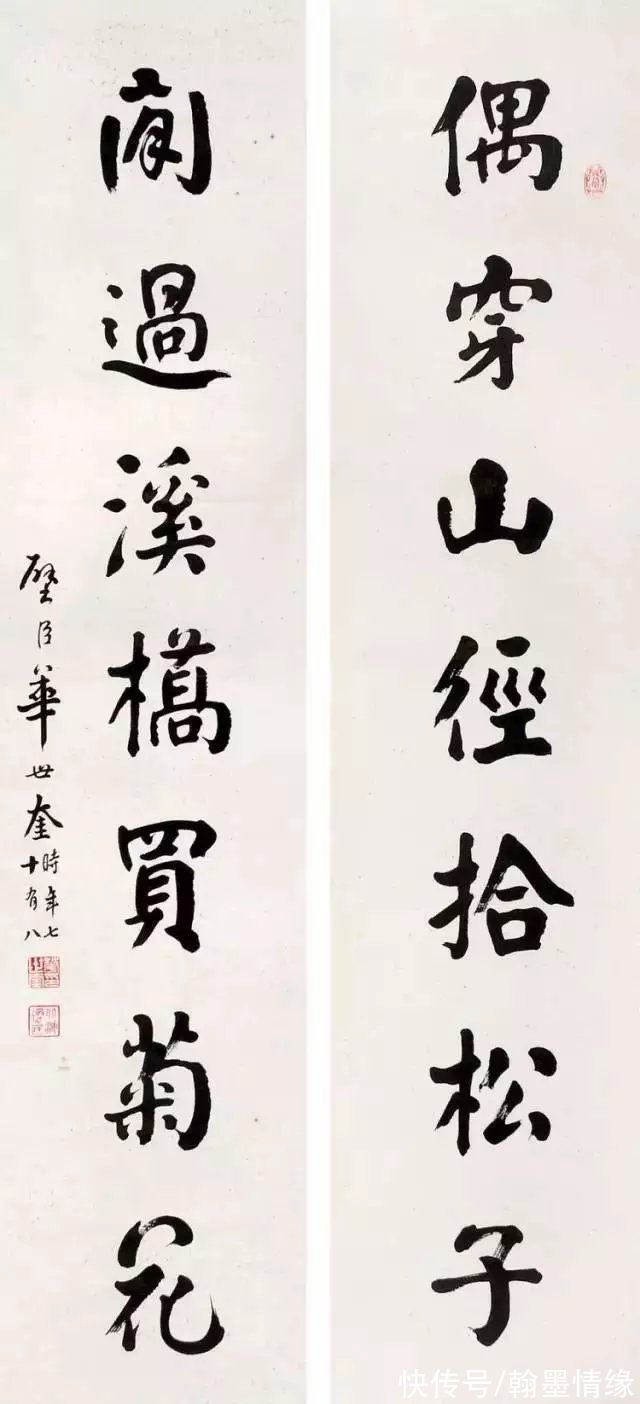 偶穿山徑拾松子
閒過溪橋買菊花
璧臣華世奎時年七十有八
快传号/翰墨情缘